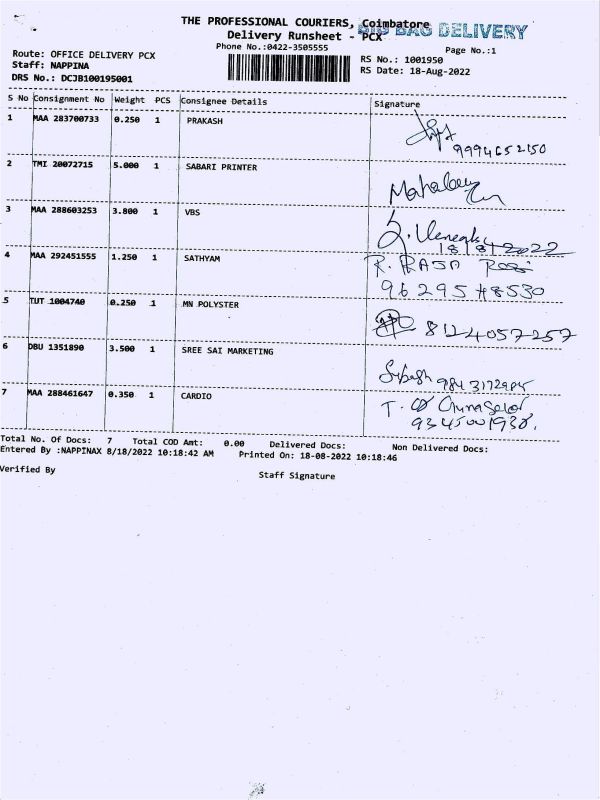 THE PROFESSIONAL COURIERS, Coimbatore
BIG BAG DELIVERY
Delivery Runsheet - PCX
Phone No.:0422-3505555
Page No.:1
Route: OFFICE DELIVERY PCX
Staff: NAPPINA
DRS No.: DCJB100195001
RS No.: 1001950
RS Date: 18-Aug-2022
S No Consignment No Weight PCS Consignee Details Signature
1 MAA 283700733 0.250 1 PRAKASH
9994652150
2 TMI 20072715 5.000 1 SABARI PRINTER
3 MAA 288603253 3.800 1 VBS
18/8/2022
4 MAA 292451555 1.250 1 SATHYAM
R. RAJA
5 TUT 1004740 0.250 1 MN POLYSTER
8124057257
6 DBU 1351890 3.500 1 SREE SAI MARKETING
7 MAA 288461647 0.350 1 CARDIO
Total No. Of Docs: 7 Total COD Amt: 0.00 Delivered Docs: Non Delivered Docs:
Entered By :NAPPINAX 8/18/2022 10:18:42 AM Printed On: 18-08-2022 10:18:46
Verified By Staff Signature